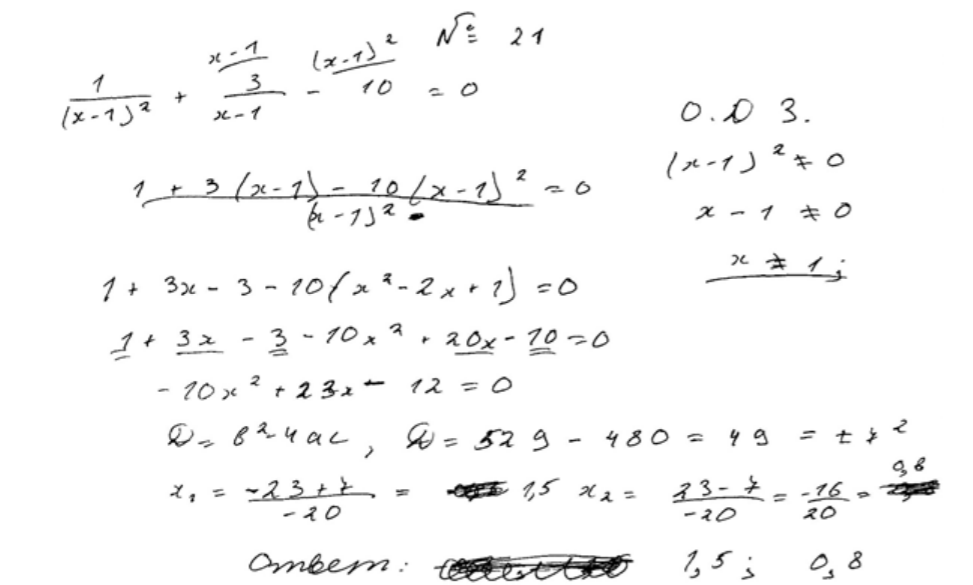 № 21
1/(x-1)² + 3/(x-1) - 10 = 0 (x-1 (x-1)²
О.Д З.
(x-1)² ≠ 0
x - 1 ≠ 0
x ≠ 1;
(1 + 3(x-1) - 10(x-1)²)/(x-1)² = 0
1 + 3x - 3 - 10(x² - 2x + 1) = 0
1 + 3x - 3 - 10x² + 20x - 10 = 0
- 10x² + 23x - 12 = 0
D = b² - 4ac, D = 529 - 480 = 49 = ± 7²
x₁ = (-23 + 7)/(-20) = 1,5 x₂ = (23 - 7)/(-20) = -16/20 = 0,8
Ответ: 1,5; 0,8